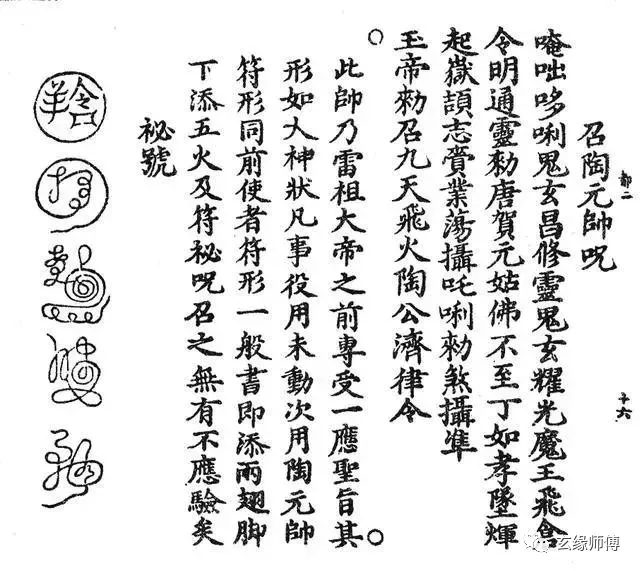 召陶元帥呪
唵咄哆唎鬼玄昌修靈鬼玄耀光魔王飛含
令明通靈勑唐賀元姑佛不至丁如孝墜煇
起嶽頡志賷業蕩攝吒唎勑煞攝準
玉帝勑召九天飛火陶公濟律令
此帥乃雷祖大帝之前專受一應聖旨其
形如大神狀凡事役用未動次用陶元帥
符形同前使者符形一般書即添兩翅脚
下添五火及符祕呪召之無有不應驗矣
祕號
十六
玄缘师傅